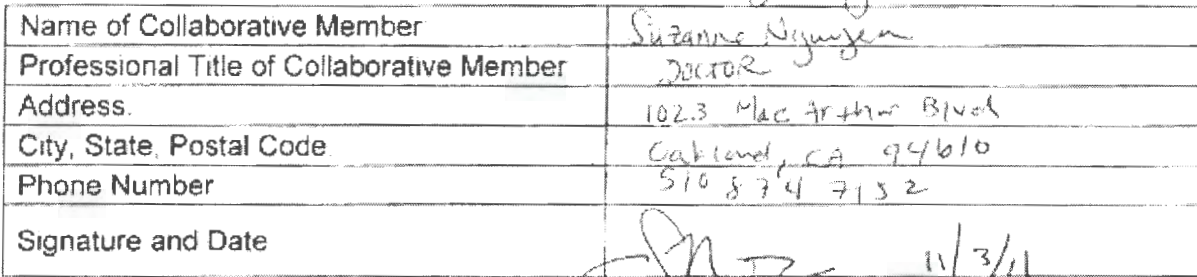 Name of Collaborative Member Suzanne Nguyen
Professional Title of Collaborative Member DOCTOR
Address. 1023 MacArthur Blvd
City, State, Postal Code. Oakland, CA 94610
Phone Number 510 874 7152
Signature and Date 11/3/11